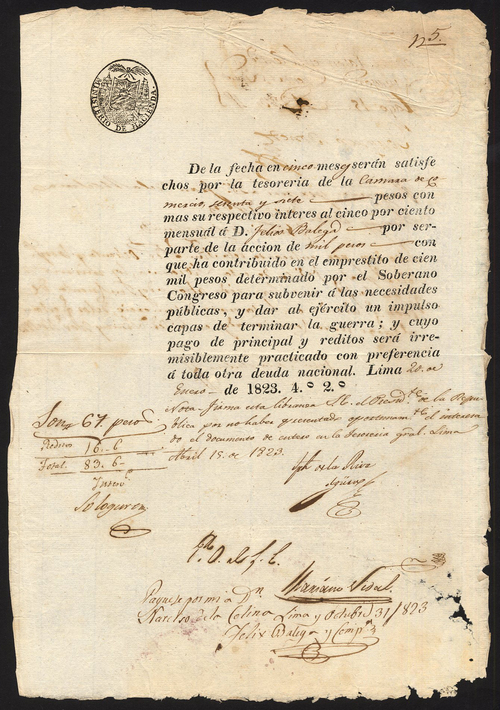 125.
MINISTERIO DE HACIENDA.
De la fecha en cinco meses serán satisfe
chos por la tesoreria de la Camara de Co
mercio, sesenta y siete pesos con
mas su respectivo interes al cinco por ciento
mensuál á D. Felix Balega por ser
parte de la accion de mil pesos con
que ha contribuido en el emprestito de cien
mil pesos determinado por el Soberano
Congreso para subvenir á las necesidades
públicas, y dar al ejército un impulso
capas de terminar la guerra; y cuyo
pago de principal y reditos será irre-
misiblemente practicado con preferencia
á toda otra deuda nacional. Lima 20 de
Enero de 1823. 4.° 2.°
Nota firma esta libranza el de la Repu
blica por no haber oportunam.te el interesa
do el documento de entero en la Tesoreria gral. Lima
Abril 15. de 1823.
Son 67 pesos
Reditos 16.. 6
Total. 83. 6
Sologuren
Jph. de la Riva
Agüero
P. O. de S. E.
Mariano Vidal.
Paguese por mi a Dn
Narciso de la Colina Lima y Octubre 31/1823
Felix Balega y Comp.a